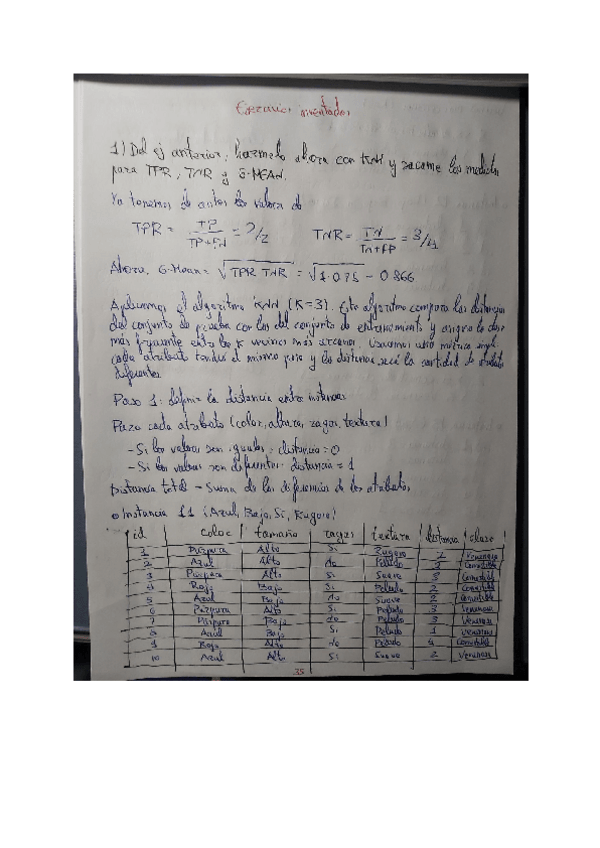 Ejercicios inventados
1) Del ej anterior, hazmelo ahora con KNN y sacame las medidas
para TPR, TNR y G-MEAN.
Ya tenemos de antes los valores de
TPR = TP / TP+FN = 2/2 TNR = TN / TN+FP = 3/4
Ahora, G-Mean = √TPR TNR = √1·0.75 = 0.866
Aplicamos el algoritmo KNN (K=3). Este algoritmo compara las distancias
del conjunto de prueba con los del conjunto de entrenamiento y asigna la clase
más frecuente entre los K vecinos más cercanos. Usaremos una métrica simple
cada atributo tendrá el mismo peso y la distancia será la cantidad de atributos
diferentes
Paso 1: definir la distancia entre instancias
Para cada atributo (color, altura, rasgos, textura)
- Si los valores son iguales, distancia = 0
- Si los valores son diferentes, distancia = 1
Distancia total - Suma de las diferencias de los atributos,
Instancia 11 (Azul, Bajo, Si, Rugoso)
id color tamaño textura distancia clase
1 Púrpura Alto Si Rugoso 2 Venenosa
2 Azul Alto No Peludo 3 Comestible
3 Púrpura Alto Si Suave 3 Comestible
4 Rojo Bajo Si Peludo 2 Comestible
5 Azul Bajo No Suave 2 Comestible
6 Púrpura Alto Si Peludo 3 Venenosa
7 Púrpura Bajo No Peludo 3 Venenosa
8 Azul Bajo Si Peludo 1 Venenosa
9 Rojo Alto No Peludo 4 Comestible
10 Azul Alto Si Suave 2 Venenosa
35